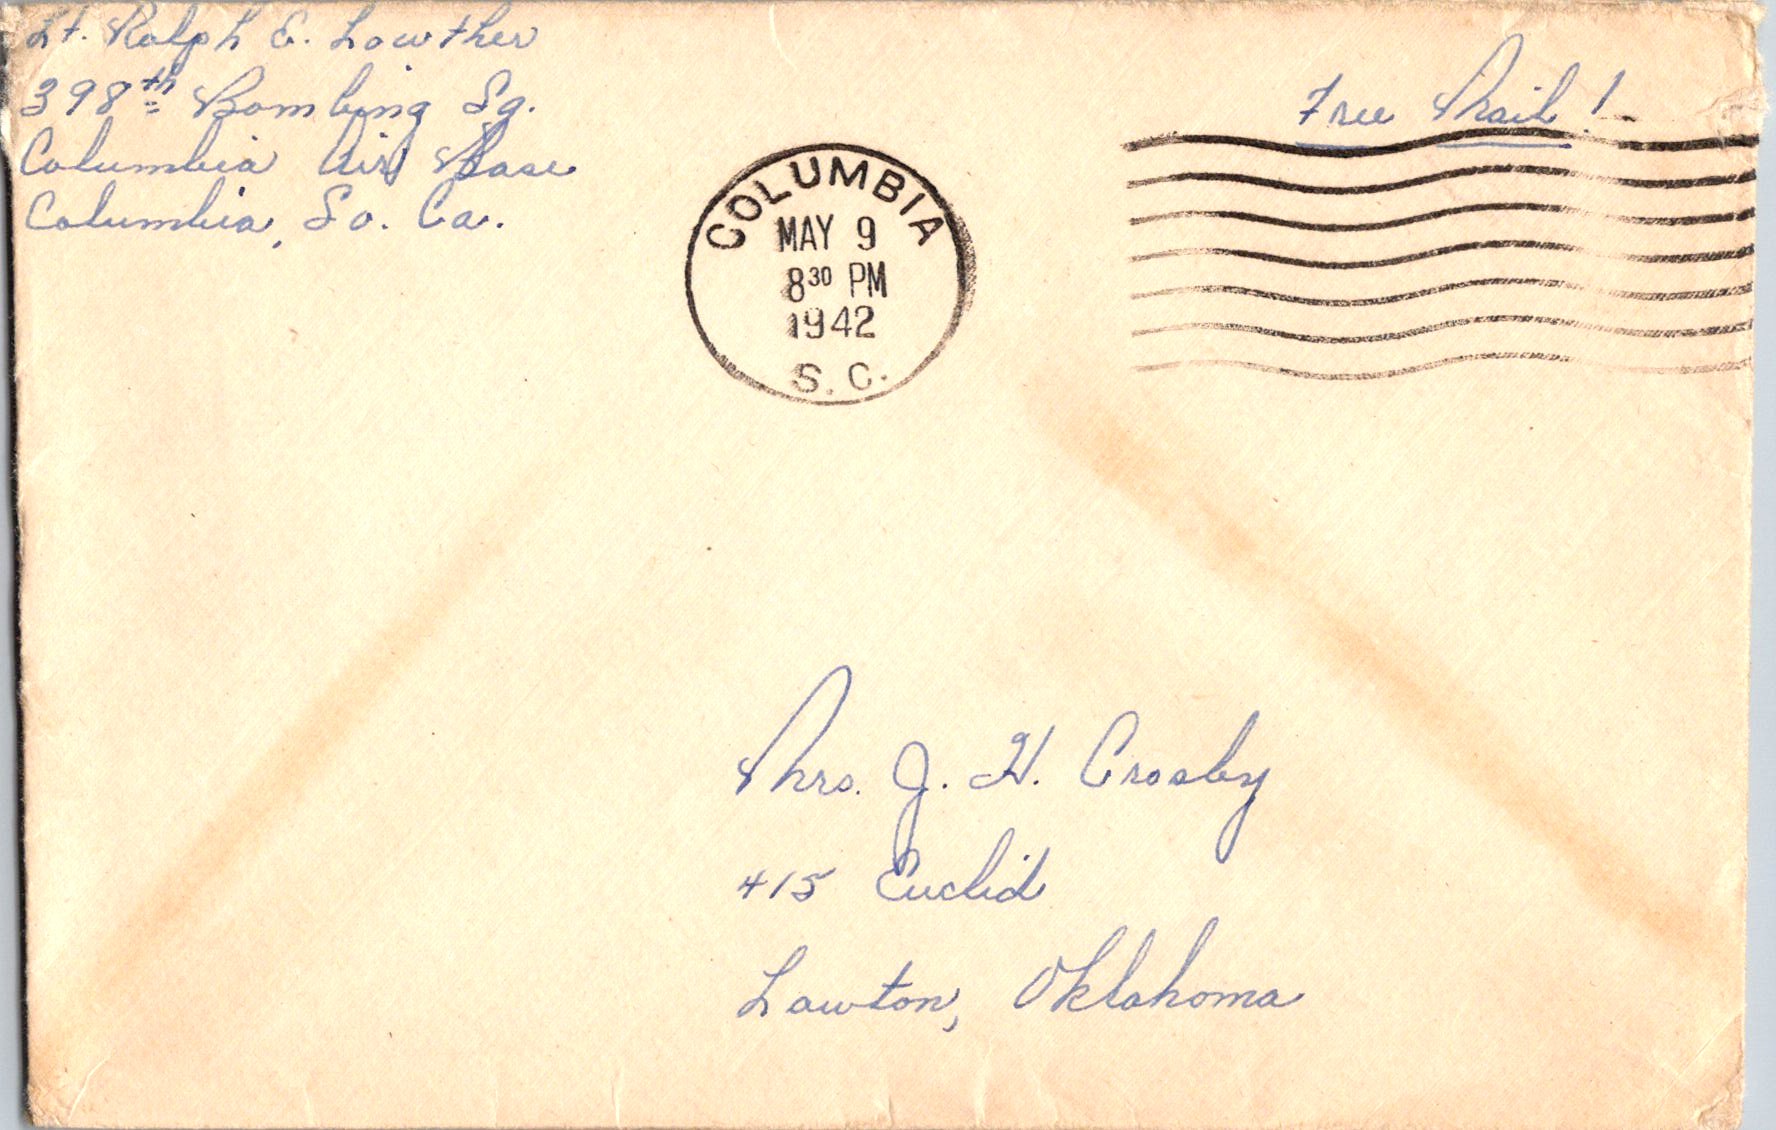 Lt. Ralph E. Lowther
398th Bombing Sq.
Columbia Air Base
Columbia, So. Ca.
Free Mail!
COLUMBIA
MAY 9
8 30 PM
1942
S. C.
Mrs. J. H. Crosby
415 Euclid
Lawton, Oklahoma